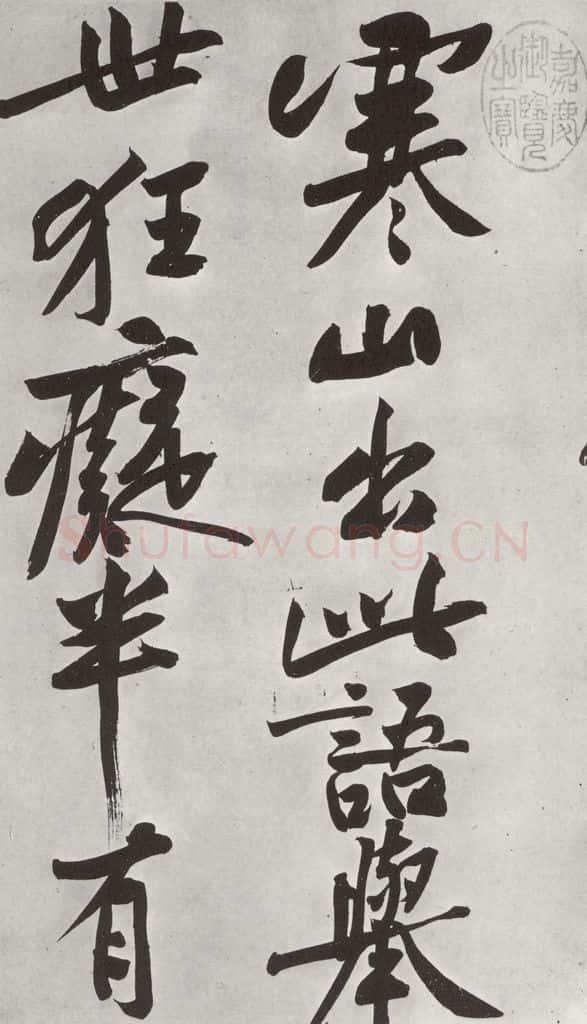 嘉慶御覽之寶
寒山出此語舉
世狂癡半有
Shufawang.CN